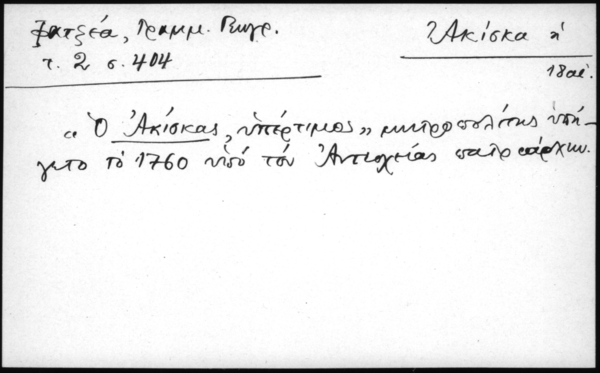 Γραμμ.
τ. 2 σ. 404
Ἀκίσκα ἡ
18 αἰ.
« Ὁ Ἀκίσκας, ὑπέρτιμος » μητροπολίτης ὑπή-
γετο τὸ 1760 ὑπὸ τὸν Ἀντιοχείας πατριάρχην.